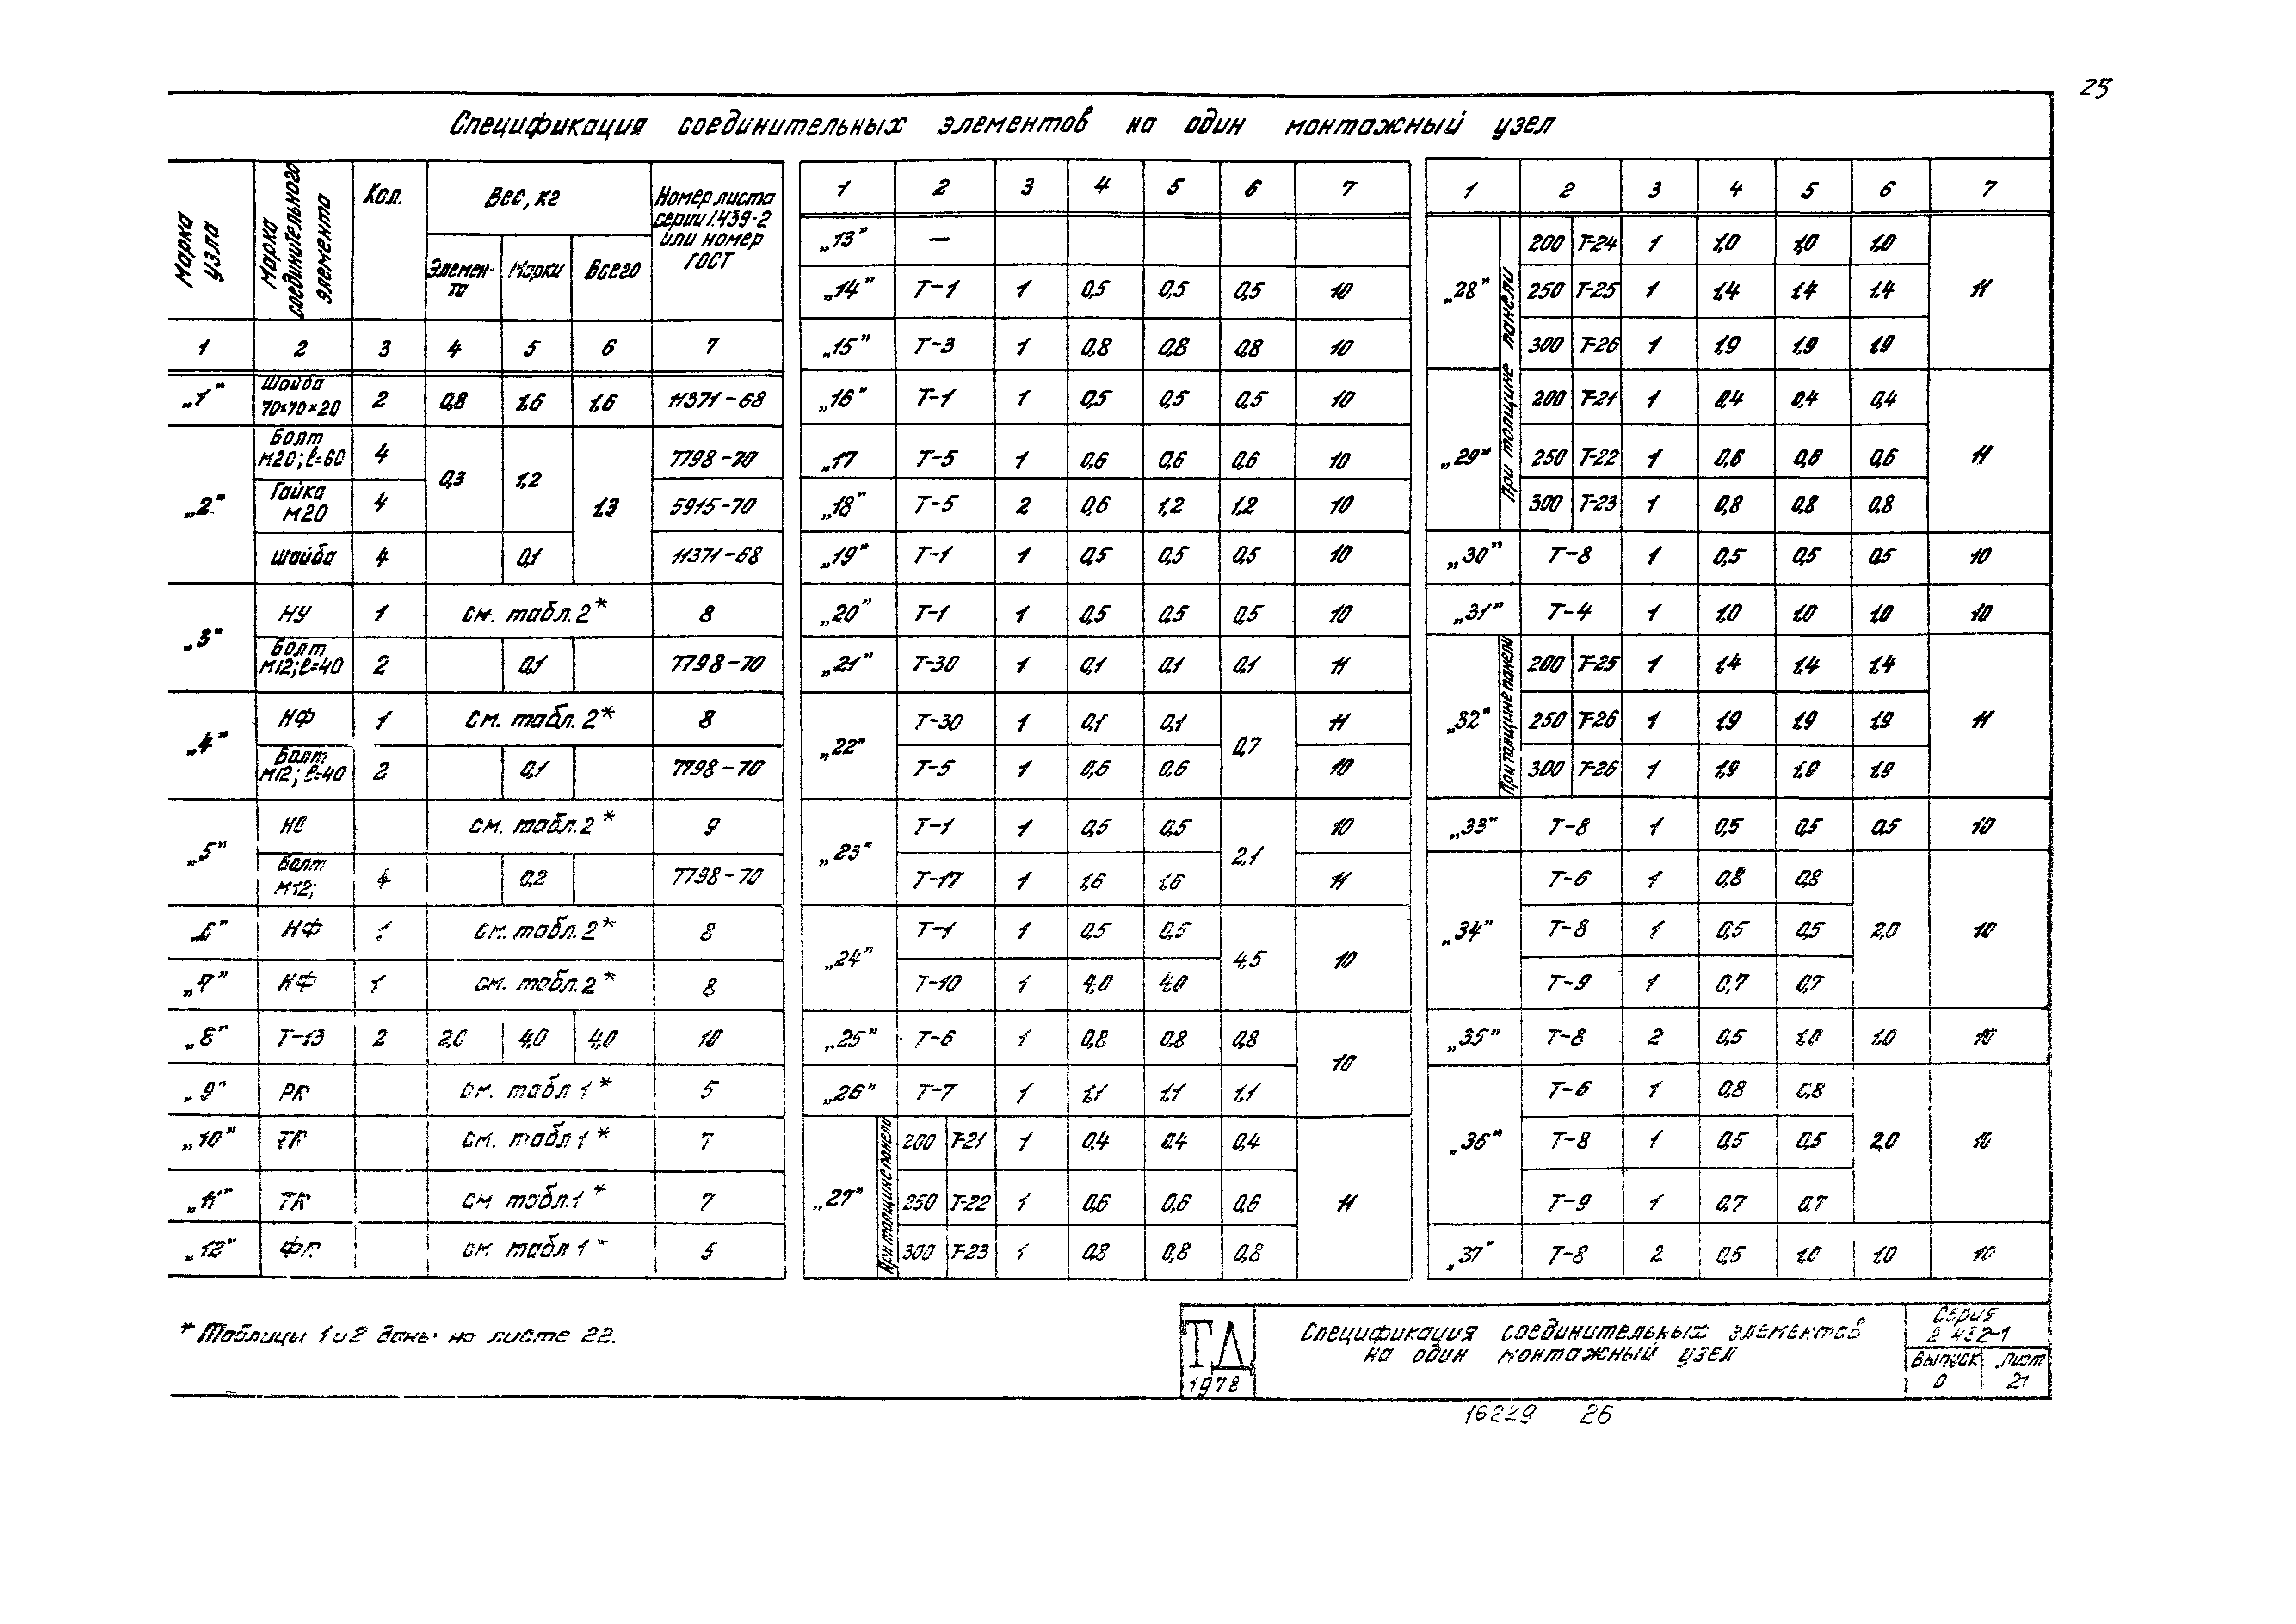 25
Спецификация соединительных элементов на один монтажный узел
Марка узла | Марка соединительного элемента | Кол. | Вес, кг | Номер листа серии 1.439-2 или номер ГОСТ
Элемента | Марки | Всего
1 | 2 | 3 | 4 | 5 | 6 | 7
„1” | Шайба 70×70×20 | 2 | 0,8 | 1,6 | 1,6 | 11371-68
„2” | Болт М20; ℓ=60 | 4 | 0,3 | 1,2 | 1,3 | 7798-70
Гайка М20 | 4 | 5915-70
Шайба | 4 | 0,1 | 11371-68
„3” | НУ | 1 | см. табл. 2* | 8
Болт М12; ℓ=40 | 2 | 0,1 | 7798-70
„4” | НФ | 1 | См. табл. 2* | 8
Болт М12; ℓ=40 | 2 | 0,1 | 7798-70
„5” | НС | см. табл. 2* | 9
Болт М12; | 4 | 0,2 | 7798-70
„6” | НФ | 1 | см. табл. 2* | 8
„7” | НФ | 1 | см. табл. 2* | 8
„8” | Т-13 | 2 | 2,0 | 4,0 | 4,0 | 10
„9” | РК | см. табл 1* | 5
„10” | ТК | см. табл 1* | 7
„11” | ТК | см табл. 1* | 7
„12” | см табл 1* | 5
1 | 2 | 3 | 4 | 5 | 6 | 7
„13” | —
„14” | Т-1 | 1 | 0,5 | 0,5 | 0,5 | 10
„15” | Т-3 | 1 | 0,8 | 0,8 | 0,8 | 10
„16” | Т-1 | 1 | 0,5 | 0,5 | 0,5 | 10
„17 | Т-5 | 1 | 0,6 | 0,6 | 0,6 | 10
„18” | Т-5 | 2 | 0,6 | 1,2 | 1,2 | 10
„19” | Т-1 | 1 | 0,5 | 0,5 | 0,5 | 10
„20” | Т-1 | 1 | 0,5 | 0,5 | 0,5 | 10
„21” | Т-30 | 1 | 0,1 | 0,1 | 0,1 | 11
„22” | Т-30 | 1 | 0,1 | 0,1 | 0,7 | 11
Т-5 | 1 | 0,6 | 0,6 | 10
„23” | Т-1 | 1 | 0,5 | 0,5 | 2,1 | 10
Т-17 | 1 | 1,6 | 1,6 | 11
„24” | Т-1 | 1 | 0,5 | 0,5 | 4,5 | 10
Т-10 | 1 | 4,0 | 4,0
„25” | Т-6 | 1 | 0,8 | 0,8 | 0,8 | 10
„26” | Т-7 | 1 | 1,1 | 1,1 | 1,1
„27” | При толщине панели | 200 | Т-21 | 1 | 0,4 | 0,4 | 0,4 | 11
250 | Т-22 | 1 | 0,6 | 0,6 | 0,6
300 | Т-23 | 1 | 0,8 | 0,8 | 0,8
1 | 2 | 3 | 4 | 5 | 6 | 7
„28” | При толщине панели | 200 | Т-24 | 1 | 1,0 | 1,0 | 1,0 | 11
250 | Т-25 | 1 | 1,4 | 1,4 | 1,4
300 | Т-26 | 1 | 1,9 | 1,9 | 1,9
„29” | 200 | Т-21 | 1 | 0,4 | 0,4 | 0,4 | 11
250 | Т-22 | 1 | 0,6 | 0,6 | 0,6
300 | Т-23 | 1 | 0,8 | 0,8 | 0,8
„30” | Т-8 | 1 | 0,5 | 0,5 | 0,5 | 10
„31” | Т-4 | 1 | 1,0 | 1,0 | 1,0 | 10
„32” | При толщине панели | 200 | Т-25 | 1 | 1,4 | 1,4 | 1,4 | 11
250 | Т-26 | 1 | 1,9 | 1,9 | 1,9
300 | Т-26 | 1 | 1,9 | 1,9 | 1,9
„33” | Т-8 | 1 | 0,5 | 0,5 | 0,5 | 10
„34” | Т-6 | 1 | 0,8 | 0,8 | 2,0 | 10
Т-8 | 1 | 0,5 | 0,5
Т-9 | 1 | 0,7 | 0,7
„35” | Т-8 | 2 | 0,5 | 1,0 | 1,0 | 10
„36” | Т-6 | 1 | 0,8 | 0,8 | 2,0 | 10
Т-8 | 1 | 0,5 | 0,5
Т-9 | 1 | 0,7 | 0,7
„37” | Т-8 | 2 | 0,5 | 1,0 | 1,0 | 10
* Таблицы 1 и 2 даны на листе 22.
ТД
1978
Спецификация соединительных элементов
на один монтажный узел
Серия
2 432-1
Выпуск | Лист
0 | 21
16229 26